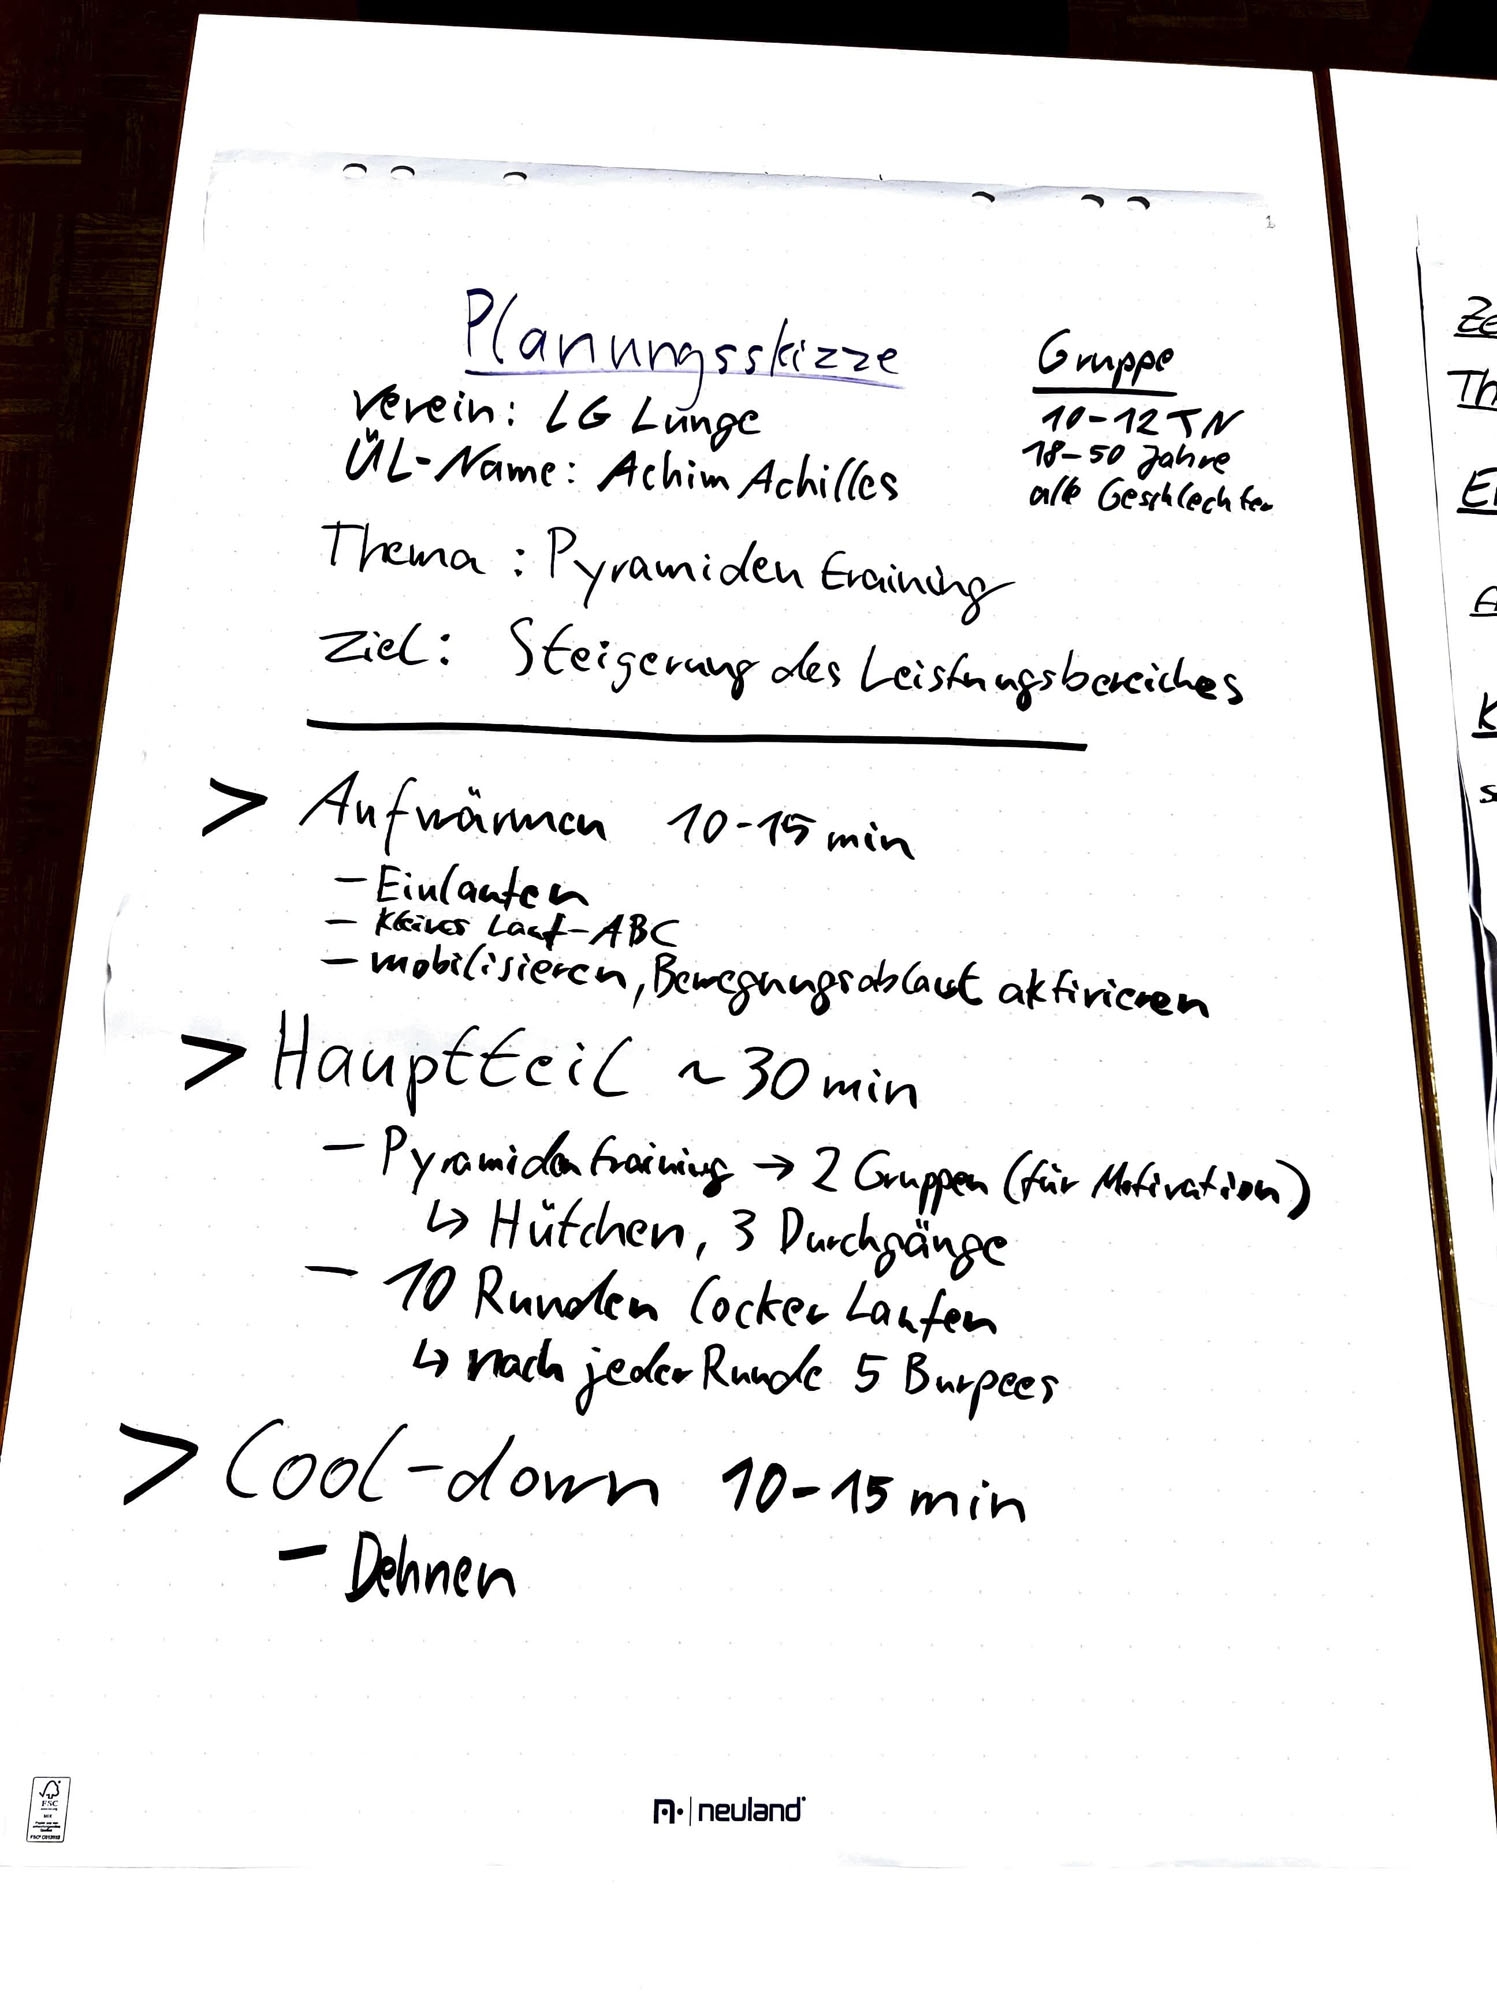 Planungsskizze
Verein: LG Lunge
ÜL-Name: Achim Achilles
Gruppe
10-12 TN
18-50 Jahre
alle Geschlechter
Thema: Pyramidentraining
Ziel: Steigerung des Leistungsbereiches
> Aufwärmen 10-15 min
- Einlaufen
- kleines Lauf-ABC
- mobilisieren, Bewegungsablauf aktivieren
> Hauptteil ~30 min
- Pyramidentraining → 2 Gruppen (für Motivation)
↳ Hütchen, 3 Durchgänge
- 10 Runden locker Laufen
↳ nach jeder Runde 5 Burpees
> Cool-down 10-15 min
- Dehnen
neuland
FSC
MIX
Ze
Th
K